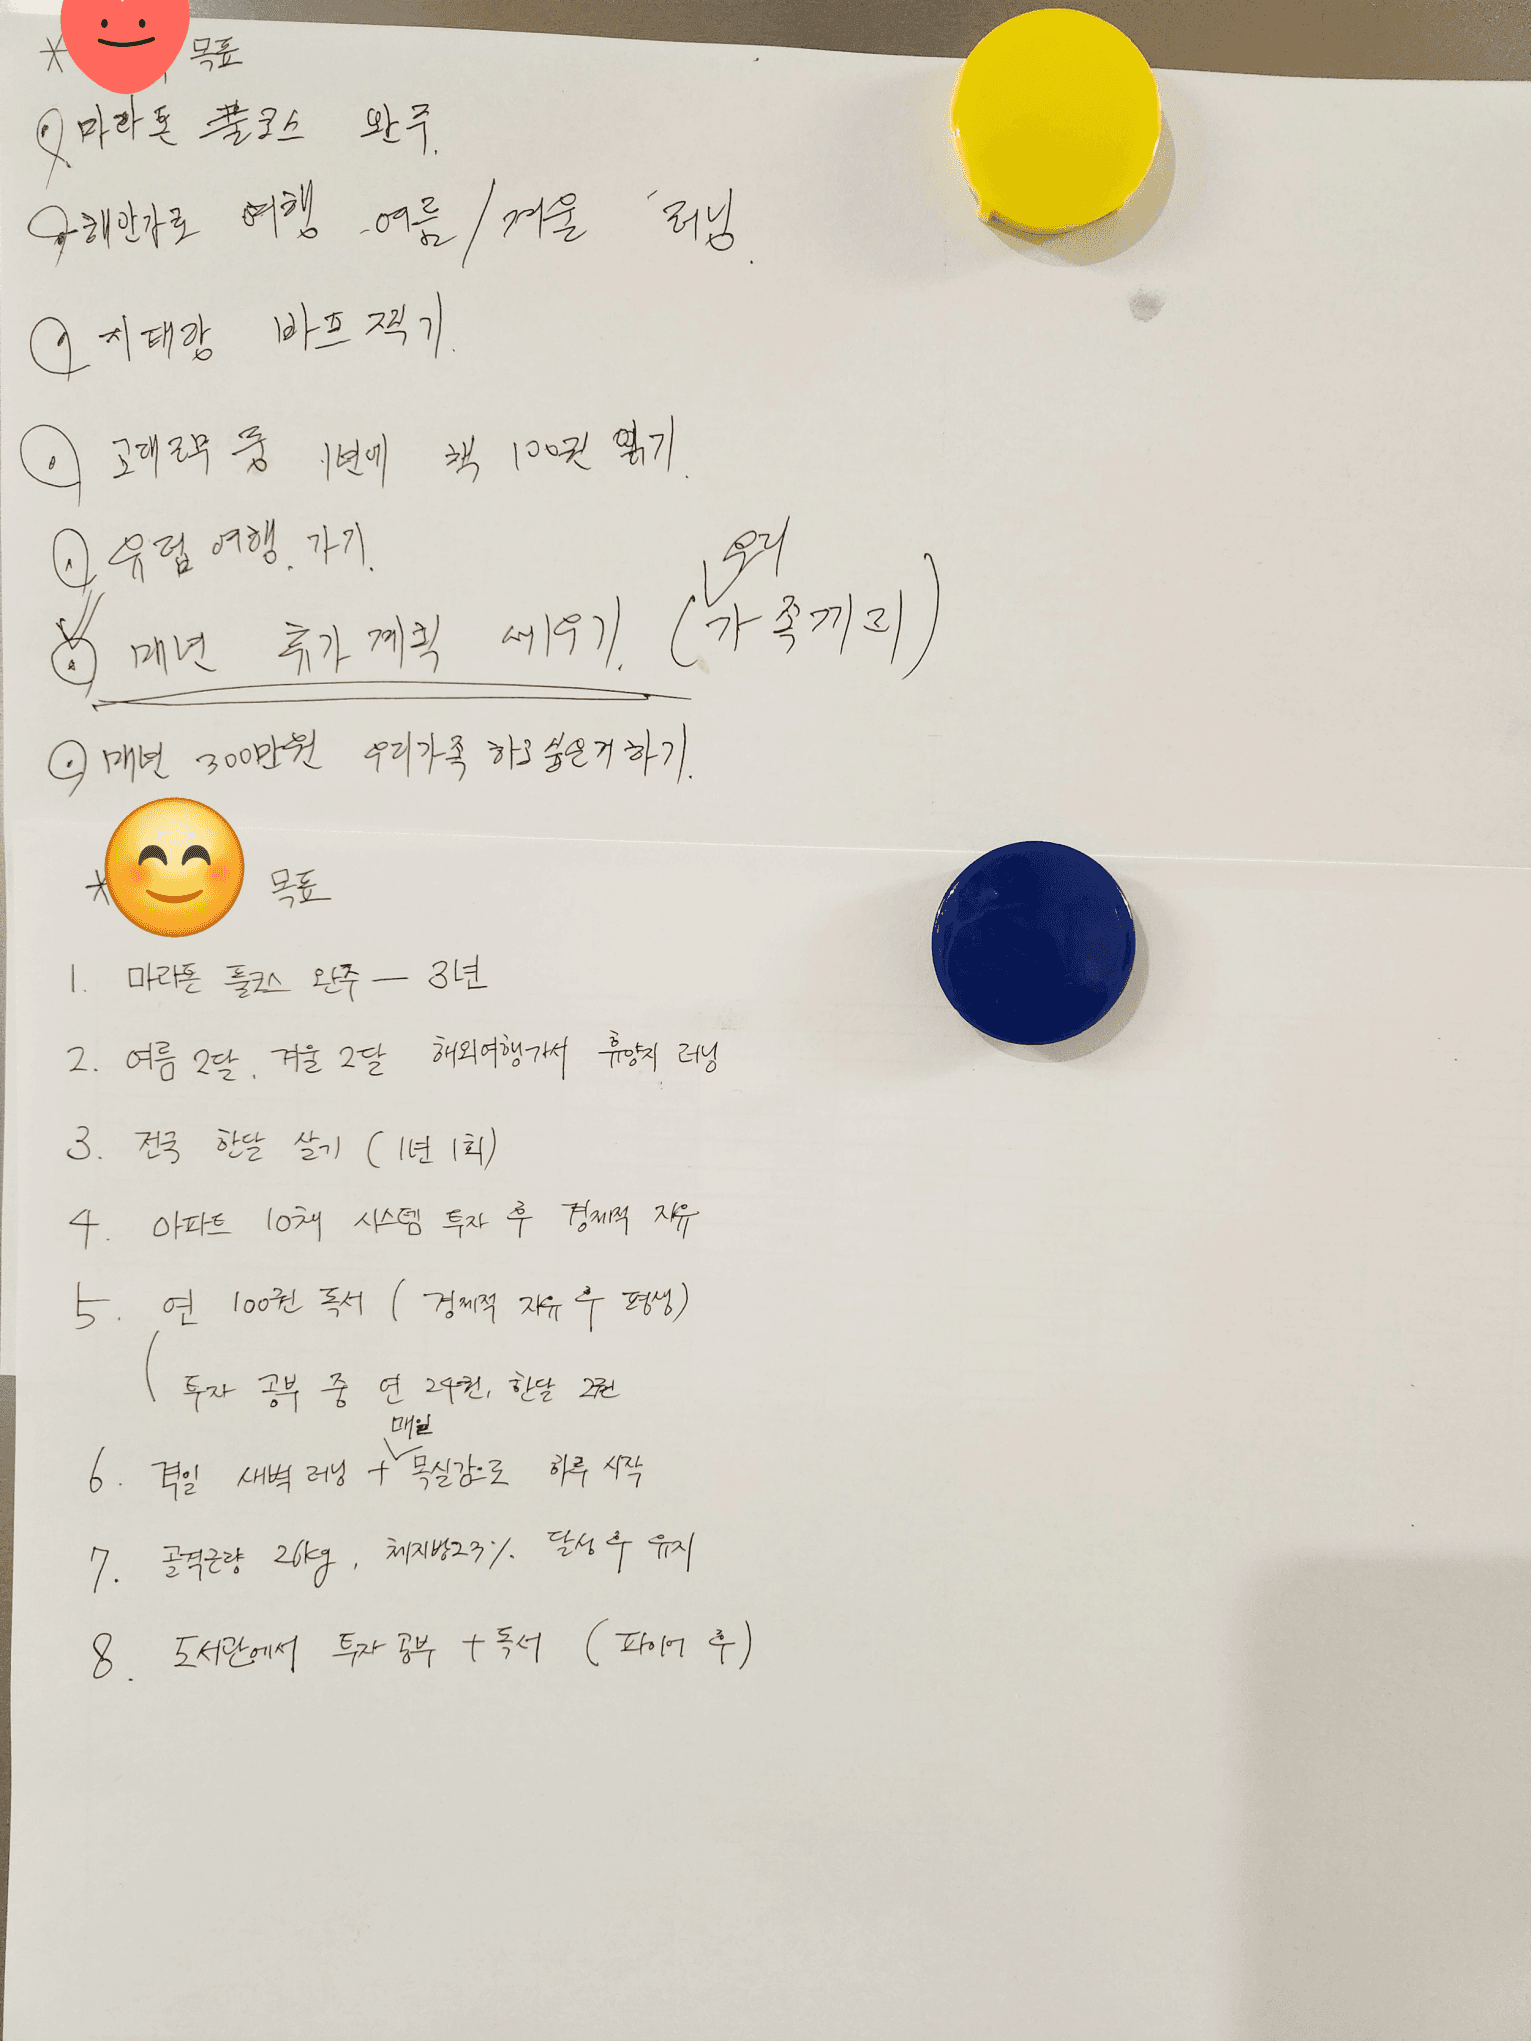 * 목표
마라톤 풀코스 완주.
여행 여름/겨울 러닝.
바프 찍기.
1년에 책 100권 읽기.
유럽 여행. 가기.
우리
매년 휴가 계획 세우기. (가족끼리)
매년 300만원 우리가족 하고싶은거 하기.
* 목표
1. 마라톤 풀코스 완주 — 3년
2. 여름 2달. 겨울 2달 해외여행가서 휴양지 러닝
3. 전국 한달 살기 (1년 1회)
4. 아파트 10채 시스템 투자 후 경제적 자유
5. 연 100권 독서 (경제적 자유 후 평생)
( 투자 공부 중 연 24권, 한달 2권
매일
6. 격일 새벽 러닝 + 목실감으로 하루 시작
7. 골격근량 26kg, 체지방23% 달성 후 유지
8. 도서관에서 투자 공부 + 독서 (파이어 후)